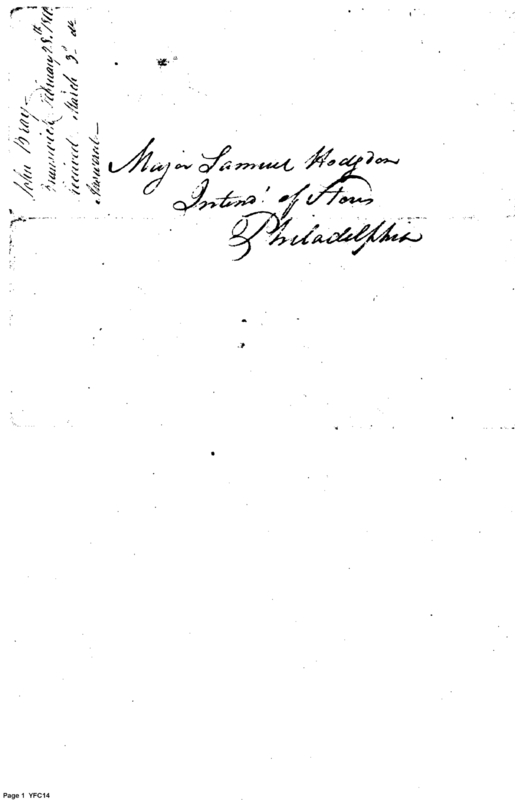 John Bray
Brunswick February 28th
received March 3d do
Answered
Major Samuel Hodgdon
Intend.t of Stores
Philadelphia
Page 1 YFC14